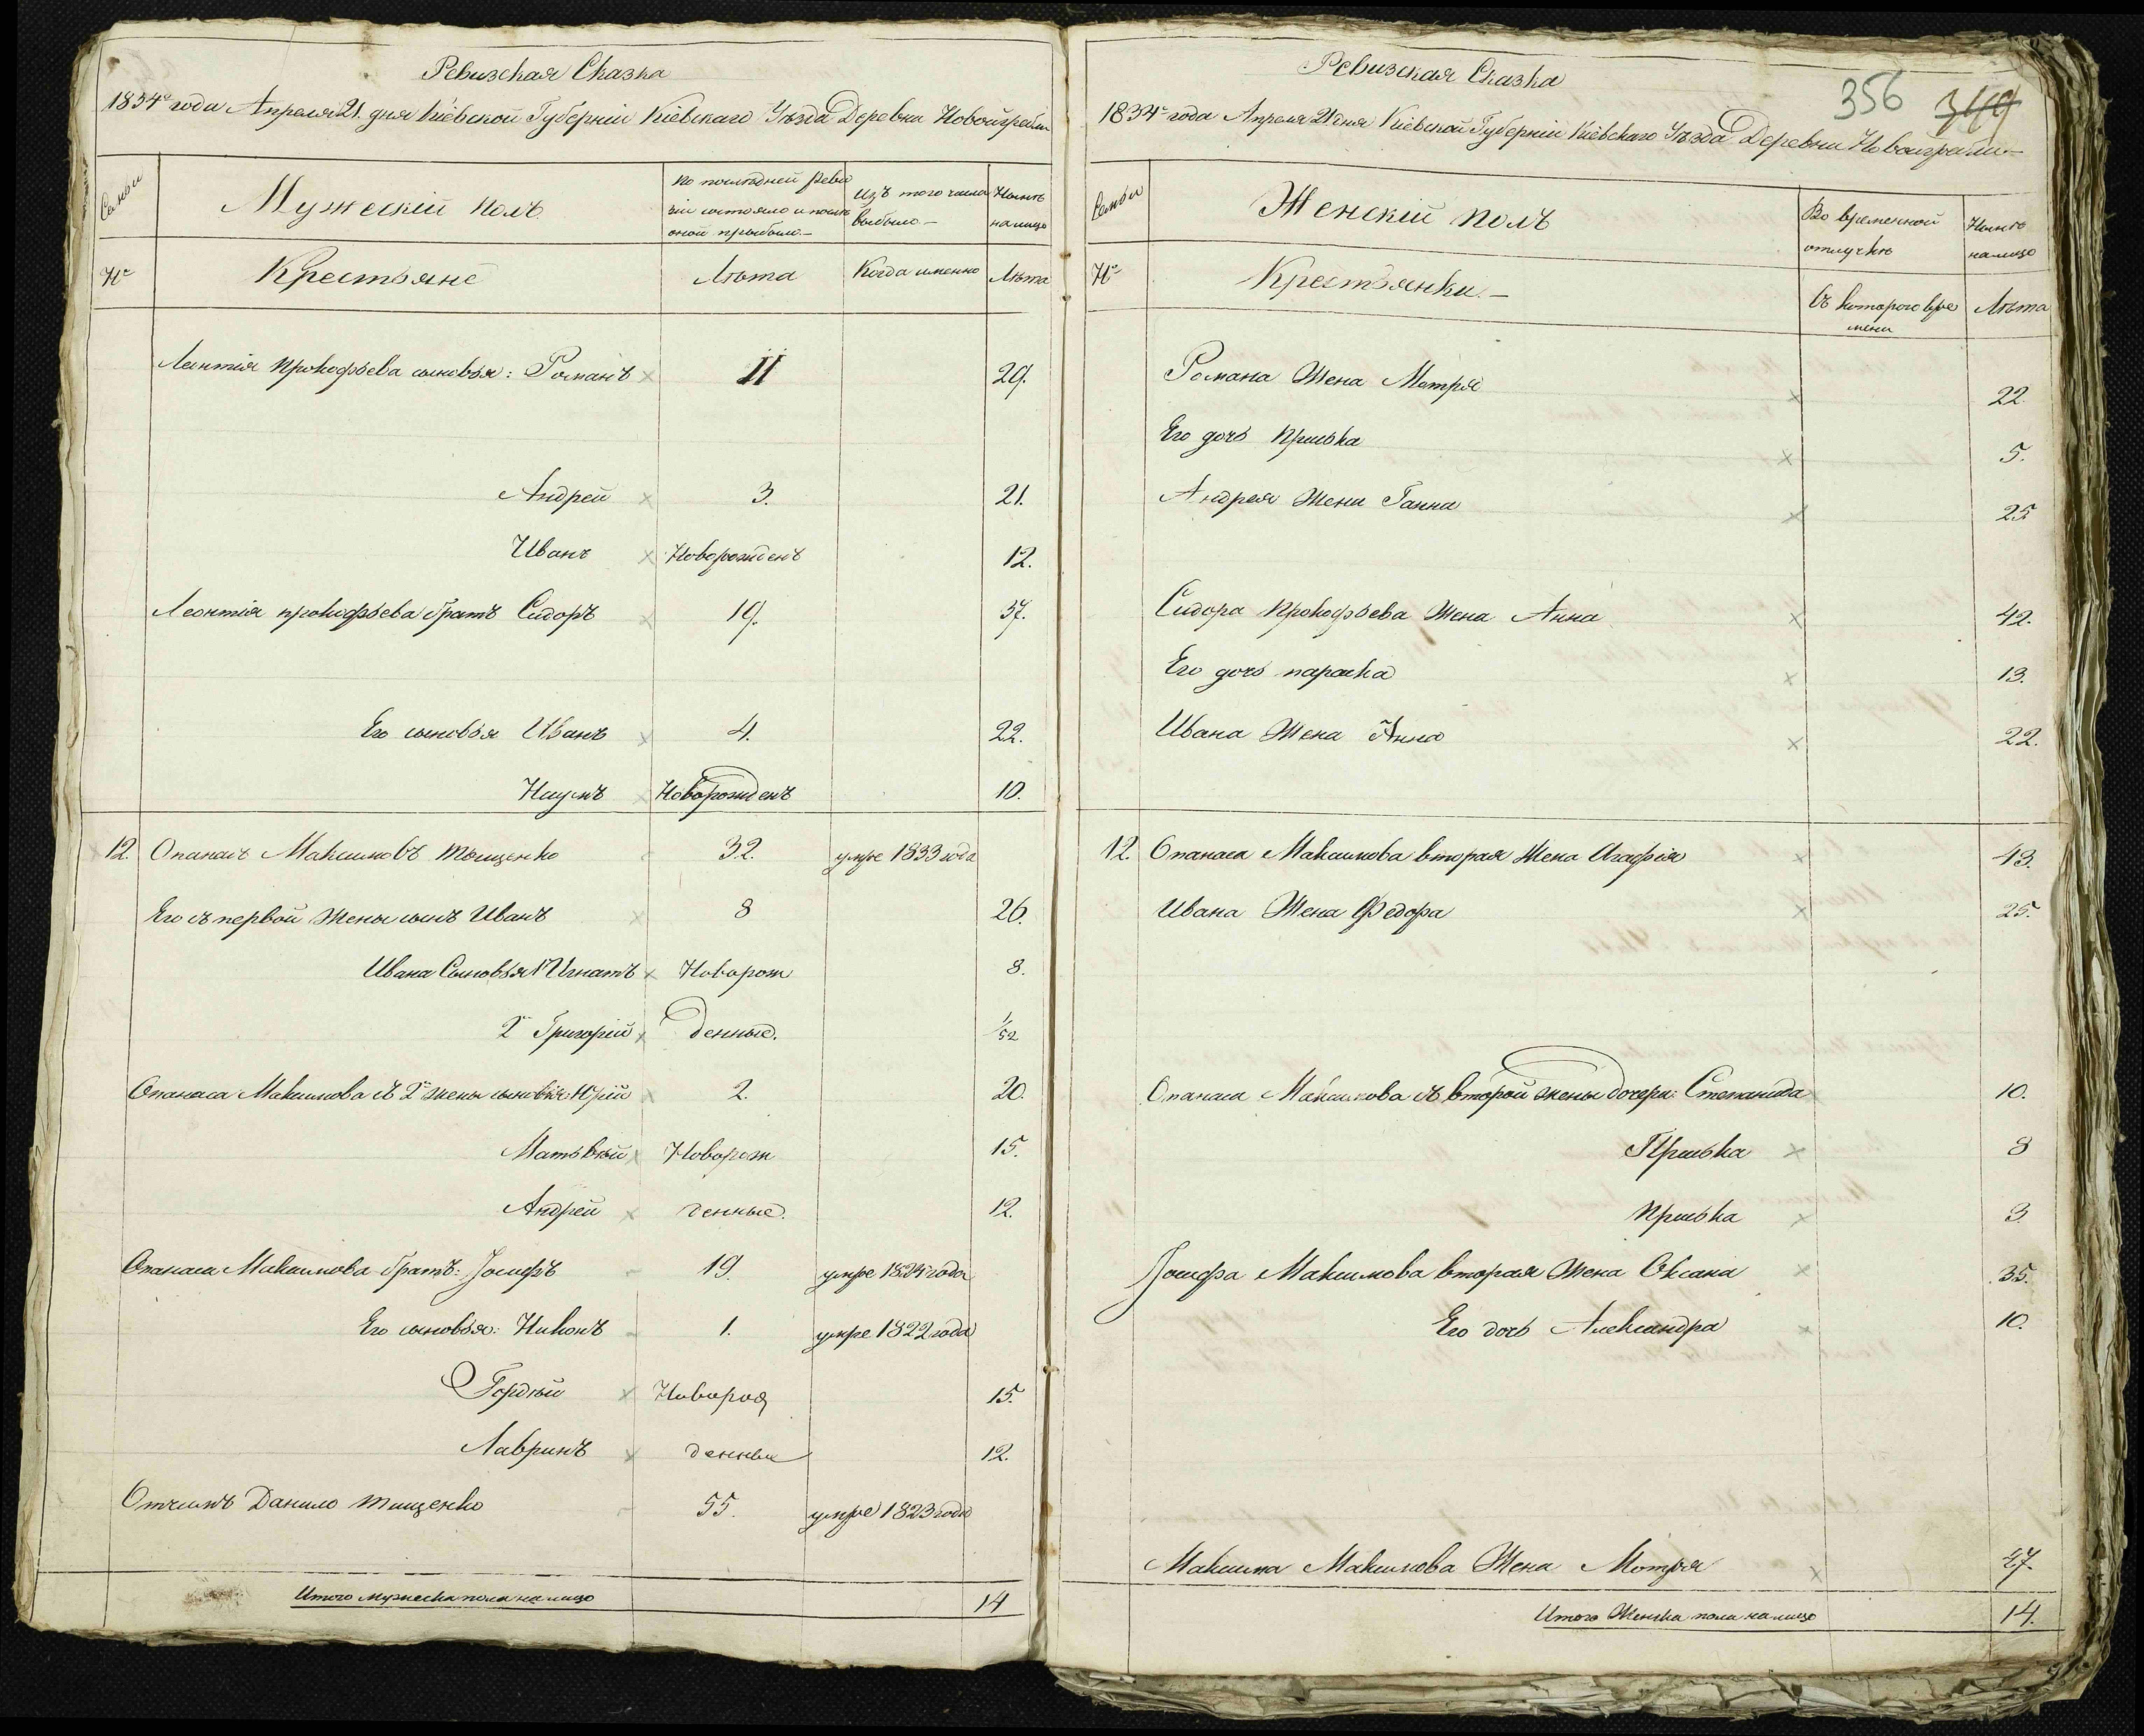 Ревизская Сказка
1834го года Апреля 21. дня Кіевской Губерніи Кіевскаго Уезда Деревни Новойгребли
Семьи
Мужескій полъ
По последней реви
зіи состояло и после
оной прибыло.—
Изъ того числа
выбыло.—
Ныне
на лицо
№
Крестьяне
Лѣта
Когда именно
Лѣта
Леонтія Прокофьева сыновья: Романъ 11 29.
Андрей 3. 21.
Иванъ Новорожденъ 12.
Леонтія прокофьева братъ Сидоръ 19. 37.
Его сыновья Иванъ 4. 22.
Наумъ Новорожденъ 10.
12. Опанасъ Максимовъ Тищенко 32. умре 1833 года
Его съ первой жены сынъ Иванъ 8 26.
Ивана Сыновья 1й Игнатъ Новорож 8.
2й Григорій денные. 1/52
Опанаса Максимова съ 2й жены сыновья: Юрій 2. 20.
Матвѣй Новорож 15.
Андрей денные. 12.
Опанаса Максимова братъ: Іосифъ 19. умре 1824 года
Его сыновья: Никонъ 1. умре 1822 года
Гордѣй Новорож 15.
Лавринъ денные 12.
Отчимъ Данило тищенко 55. умре 1823 года
Итого мужеска пола на лицо 14
Ревизская Сказка
356 349
1834го года Апреля 21 дня Кіевской Губерніи Кіевскаго Уѣзда Деревни Новойгребли—
Семьи
Женскій полъ
Во временной
отлучке
Ныне
на лицо
№
Крестьянки.—
Съ котораго вре
мени
Лѣта
Романа Жена Мотря 22.
Его дочь Приська 5.
Андрея Жена Ганна 25
Сидора Прокофьева Жена Анна 42.
Его дочь параска 13.
Ивана Жена Анна 22.
12. Опанаса Максимова вторая Жена Агафія 43.
Ивана Жена Федора 25.
Опанаса Максимова съ второй жены дочери: Степанида 10.
Приська 8
Приська 3
Іосифа Максимова вторая Жена Оксана 35.
Его дочь Александра 10.
Максима Максимова Жена Мотря 47.
Итого Женска пола на лицо 14.